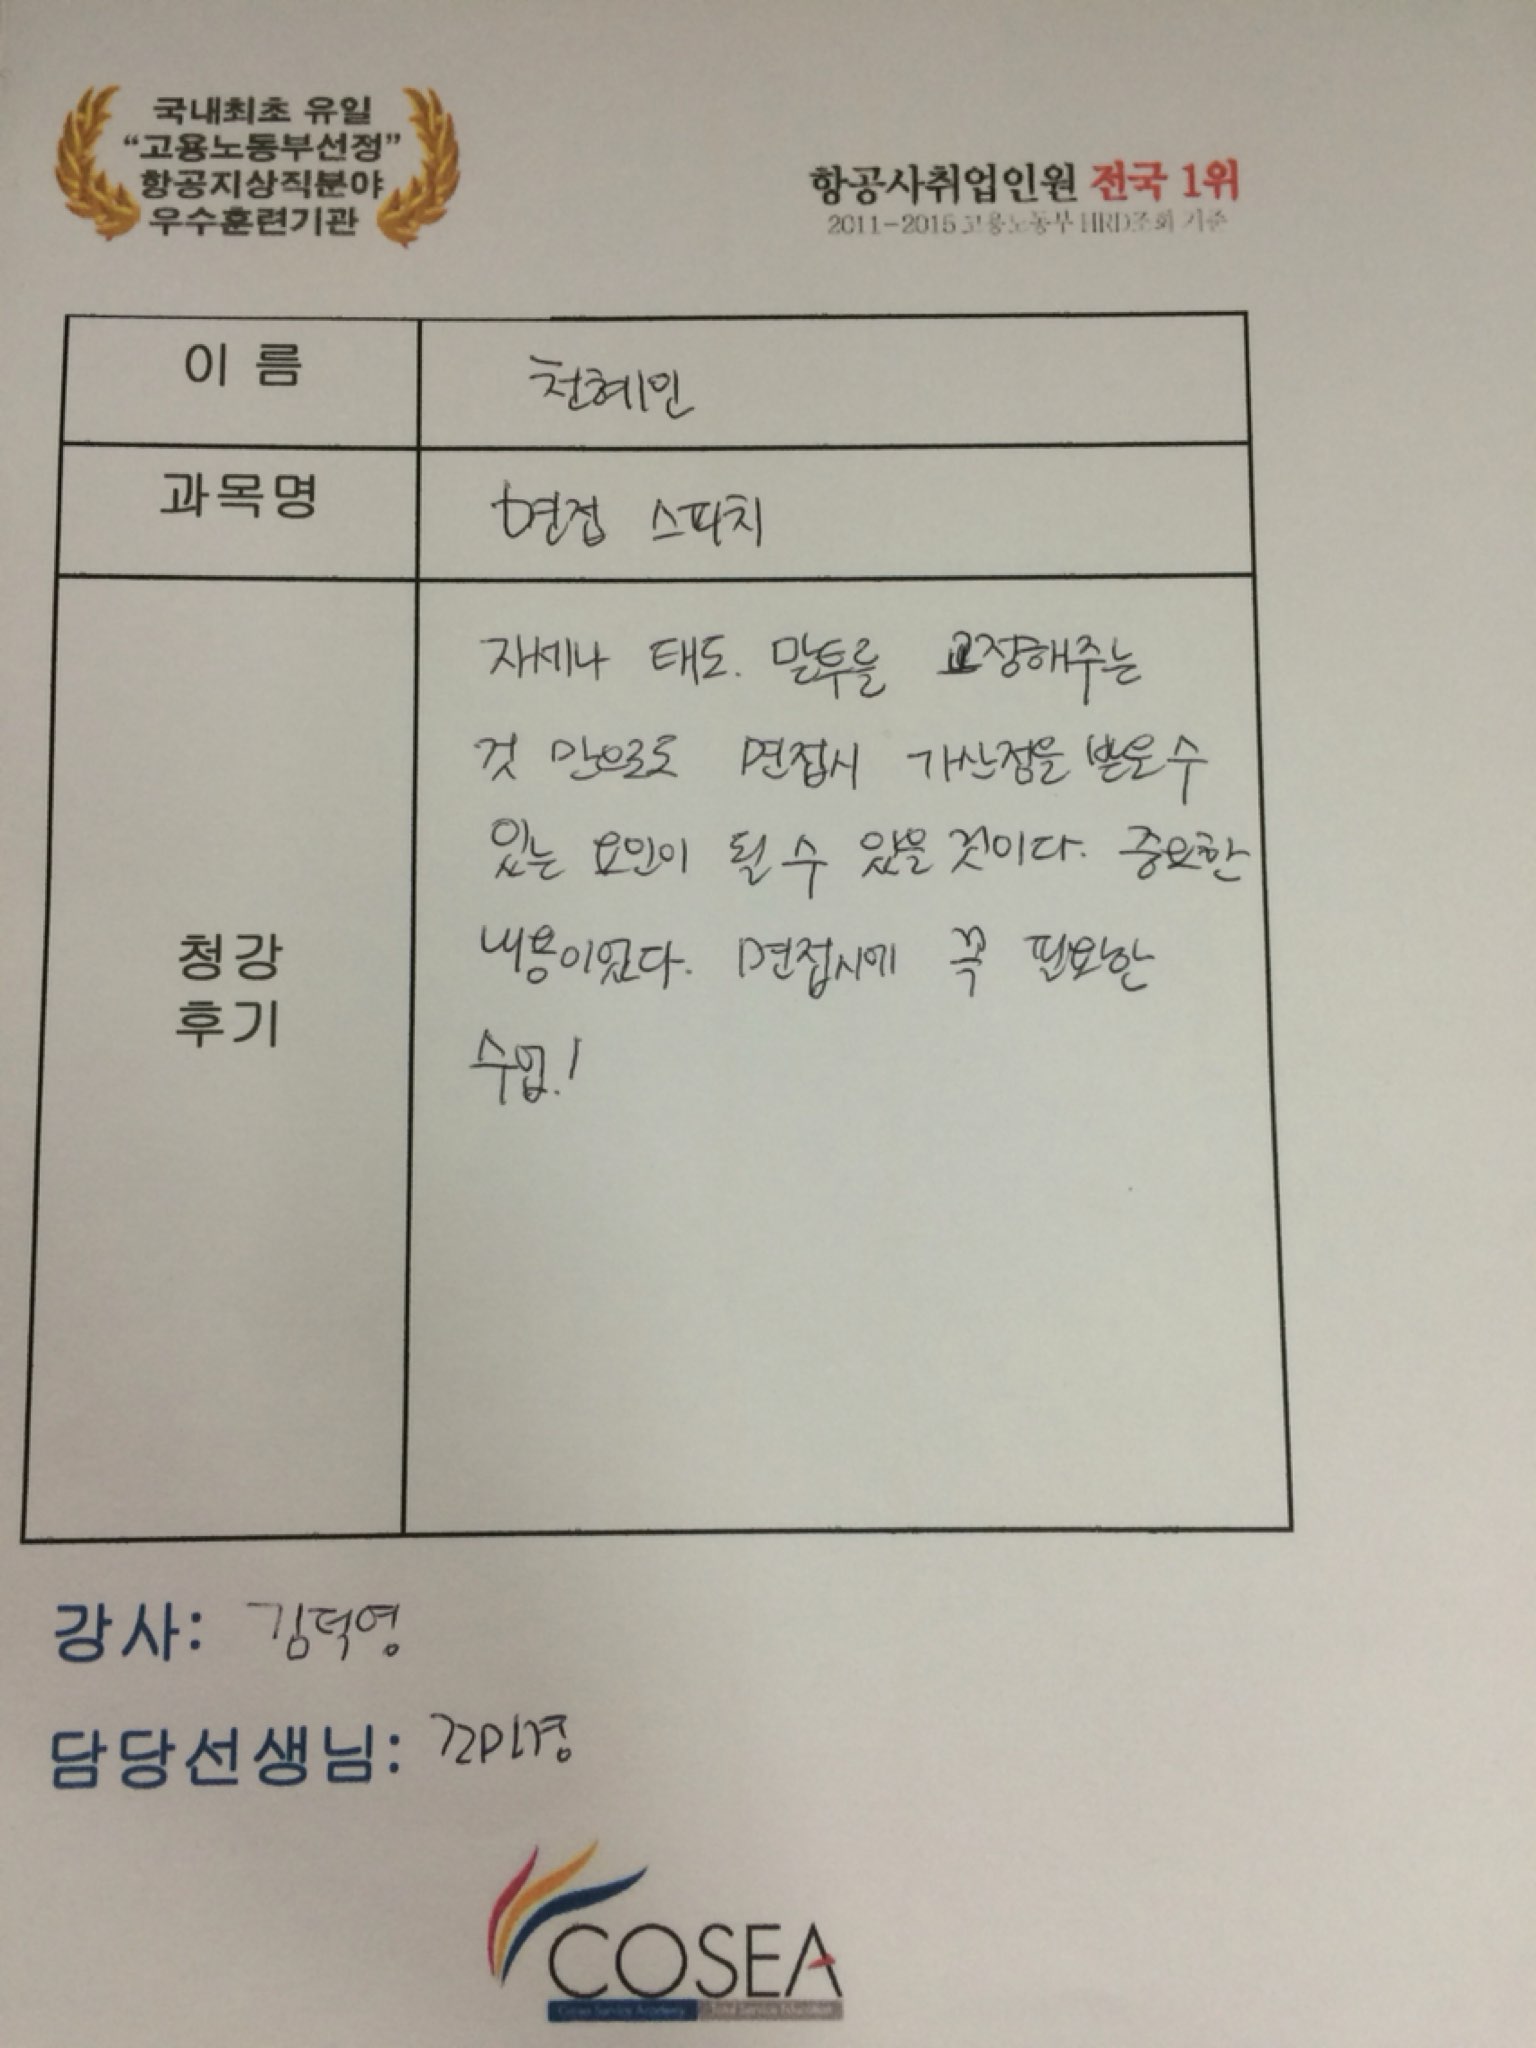 국내최초 유일
“고용노동부선정”
항공지상직분야
우수훈련기관
항공사취업인원 전국 1위
2011-2015 고용노동부 HRD조회 기준
이 름
천혜인
과목명
면접 스피치
자세나 태도. 말투를 교정해주는
것 만으로도 면접시 가산점을 받을 수
있는 요인이 될 수 있을 것이다. 중요한
내용이었다. 면접시에 꼭 필요한
수업.!
청강
후기
강사: 김덕영
담당선생님:
COSEA
Cosea Service Academy Total Service Education